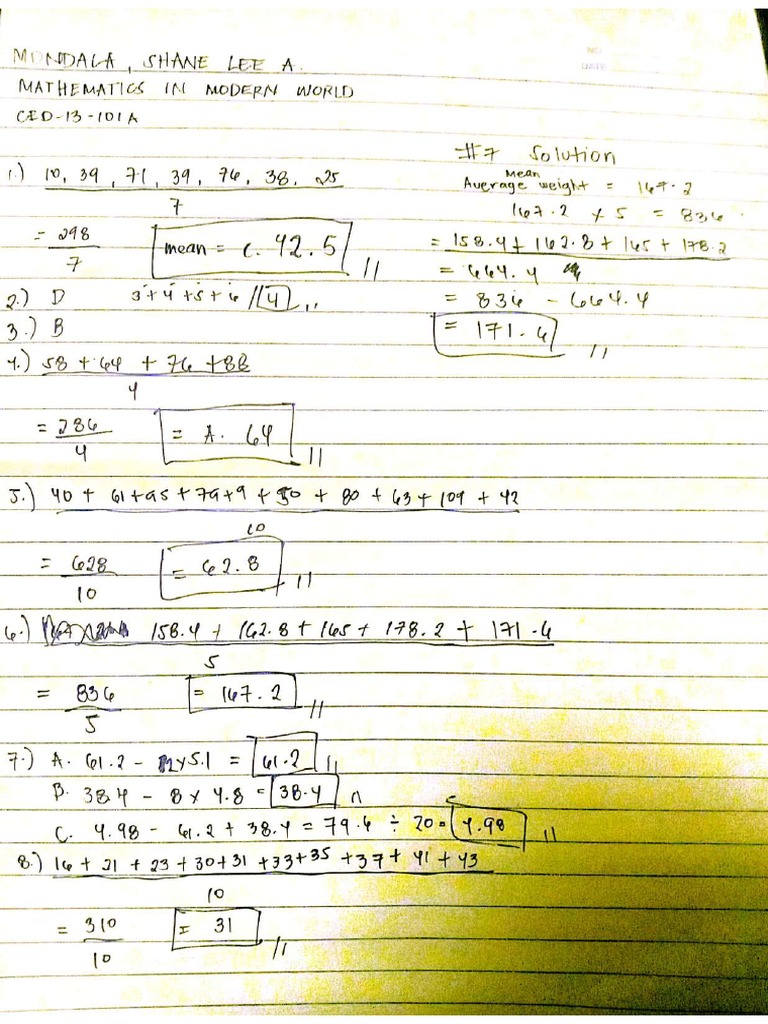 NO
DATE
MONDALA, SHANE LEE A.
MATHEMATICS IN MODERN WORLD
CED-13-101A
1.) 10, 39, 71, 39, 76, 38, 25
7
= 298
7
mean = c. 42.5 //
2.) D 3+4+5+6 // 4 //
3.) B
4.) 58 + 64 + 76 + 88
4
= 286
4
= A. 64 //
5.) 40 + 61 + 95 + 79 + 9 + 50 + 80 + 63 + 109 + 42
10
= 628
10
= 62.8 //
6.) 158.4 + 162.8 + 165 + 178.2 + 171.6
5
= 836
5
= 167.2 //
7.) A. 61.2 - 12 x 5.1 = 61.2 //
B. 38.4 - 8 x 4.8 = 38.4 //
C. 4.98 - 61.2 + 38.4 = 79.6 ÷ 20 = 4.98 //
8.) 16 + 21 + 23 + 30 + 31 + 33 + 35 + 37 + 41 + 43
10
= 310
10
= 31 //
#7 Solution
Mean
Average weight = 167.2
167.2 x 5 = 836
= 158.4 + 162.8 + 165 + 178.2
= 664.4
= 836 - 664.4
= 171.6 //